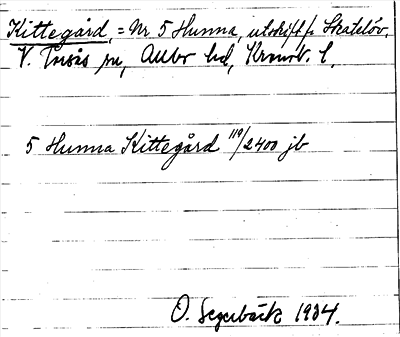 Kittegård, = Nr 5 Hunna, utskift fr. Skatelöv,
V. Torsås sn, Allbo hd, Kronob. l.
5 Hunna Kittegård 119/2400 jb
O. Segerbäck 1934.